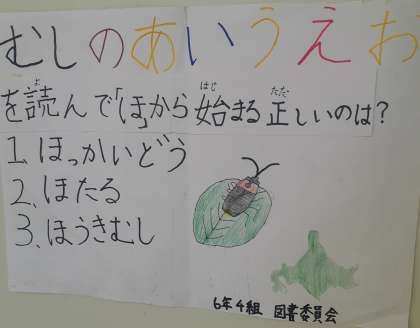 むしのあいうえお
を読んで「ほ」から始まる正しいのは?
1.ほっかいどう
2.ほたる
3.ほうきむし
6年4組 図書委員会